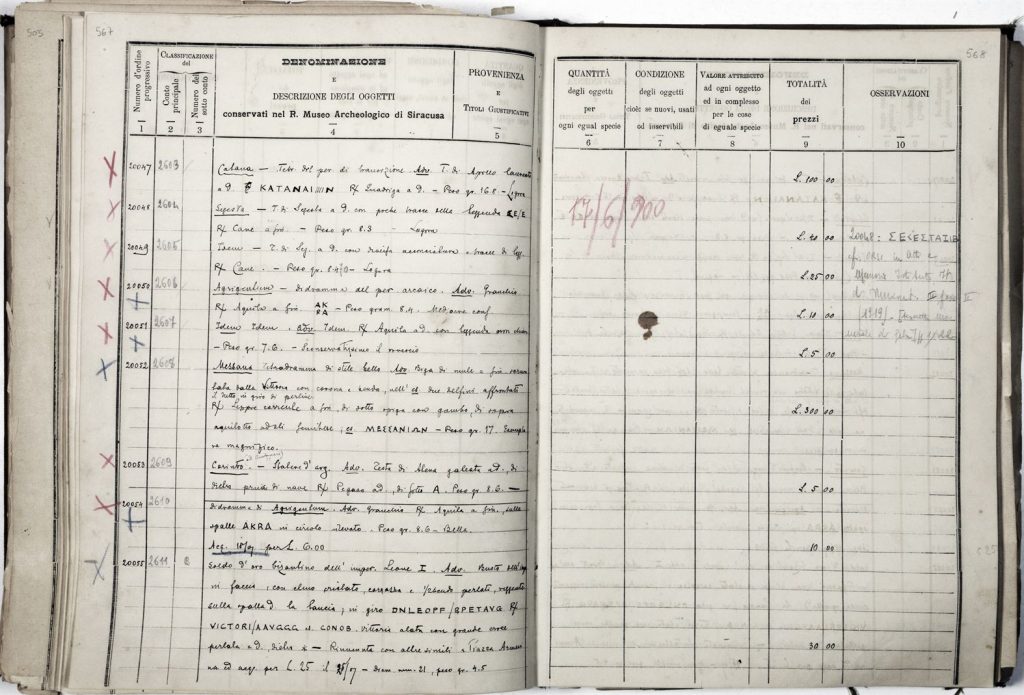 505
567
Numero d'ordine progressivo
CLASSIFICAZIONE
del
Conto principale
Numero del sotto conto
DENOMINAZIONE
E
DESCRIZIONE DEGLI OGGETTI
conservati nel R. Museo Archeologico di Siracusa
PROVENIENZA
E
TITOLI GIUSTIFICATIVI
1 2 3 4 5
20047 2603 Catana — Tetr. del per. di transizione Adv. T. di Apollo laureato
a d. KATANAI Rf Quadriga a d. — Peso gr. 16.8 — Logora
20048 2604 Segesta — T. di Segesta a d. con poche tracce della leggenda
Rf Cane a sin. — Peso gr. 8.3 — Logora
20049 2605 Idem — T. di Seg. a d. con acconciatura tracce di legg.
Rf Cane. — Peso gr. — Logora
20050 2606 Agrigentum — didramma del per. arcaico. Adv. Granchio
Rf Aquila a sin. AK RA — Peso gram. 8.4. Mediocre conf.
20051 2607 Idem Idem. Adv. Idem. Rf Aquila a d. con leggenda
— Peso 7.6. —
20052 2608 Messana Tetradramma di stile bello Adv. Biga di mule a sin.
dalla Vittoria con corona e nell' es due delfini affrontati
in giro di perline
Rf Lepre corrente a sin, di sotto spiga con gambo, di sopra
aquilotto ad ali es MESSANIΩN — Peso gr. 17. Esempla
re magnifico.
20053 2609 Corinto — Statere d' arg. Adv. Testa di Atena galeata a d., di
dietro di nave Rf Pegaso a d., di sotto A. Peso gr. 8.6. —
20054 2610 Didramma di Agrigentum. Adv. Granchio Rf Aquila a sin. sulle
spalle AKRA in circolo rilevato. Peso gr. 8.6 — Bella.
Acq. per L. 6.00
20055 2611 Soldo d' oro bizantino dell' imper. Leone I. Adv. Busto dell' imp
in faccia, con elmo cristato, corazza e scudo perlati,
sulla spalla d. la lancia; in giro DNLEOPF/RPETAVG Rf
VICTORI/AAVGGG es. CONOB. Vittoria alata con grande croce
perlata a d. dietro * — Rinvenuta con altre simili a Piazza Armeri
na ed acq. per L. 25 il — num. 21, peso gr. 4.5
568
QUANTITÀ
degli oggetti
per
ogni egual specie
CONDIZIONE
degli oggetti
cioè: se nuovi, usati
od inservibili
VALORE ATTRIBUITO
ad ogni oggetto
ed in complesso
per le cose
di eguale specie
TOTALITÀ
dei
prezzi
OSSERVAZIONI
6 7 8 9 10
17/6/900
L. 100 00
L. 40 00
L. 25 00
L. 10 00
L. 5 00
L. 300 00
L. 5 00
10 00
30 00
20048: ΣΕΓΕΣΤΑΖΙΒ
cf. Orsi in Atti e
Istituto It.
di Numismat. III
1919